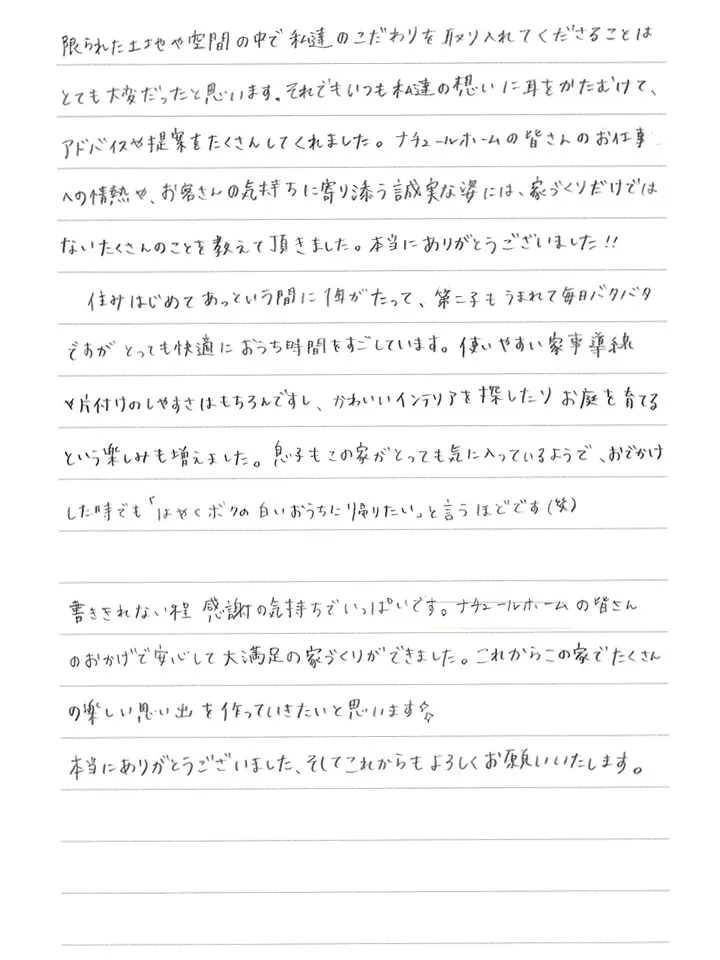 限られた土地や空間の中で私達のこだわりを取り入れてくださることは
とても大変だったと思います。それでもいつも私達の想いに耳をかたむけて、
アドバイスや提案をたくさんしてくれました。ナチュールホームの皆さんのお仕事
への情熱や、お客さんの気持ちに寄り添う誠実な姿には、家づくりだけでは
ないたくさんのことを教えて頂きました。本当にありがとうございました!!
住みはじめてあっという間に1年がたって、第二子もうまれて毎日バタバタ
ですがとっても快適におうち時間をすごしています。使いやすい家事導線
や片付けのしやすさはもちろんですし、かわいいインテリアを探したりお庭を育てる
という楽しみも増えました。息子もこの家がとっても気に入っているようで、おでかけ
した時でも「はやくボクの白いおうちに帰りたい」と言うほどです(笑)
書ききれない程感謝の気持ちでいっぱいです。ナチュールホームの皆さん
のおかげで安心して大満足の家づくりができました。これからこの家でたくさん
の楽しい思い出を作っていきたいと思います☆
本当にありがとうございました、そしてこれからもよろしくお願いいたします。